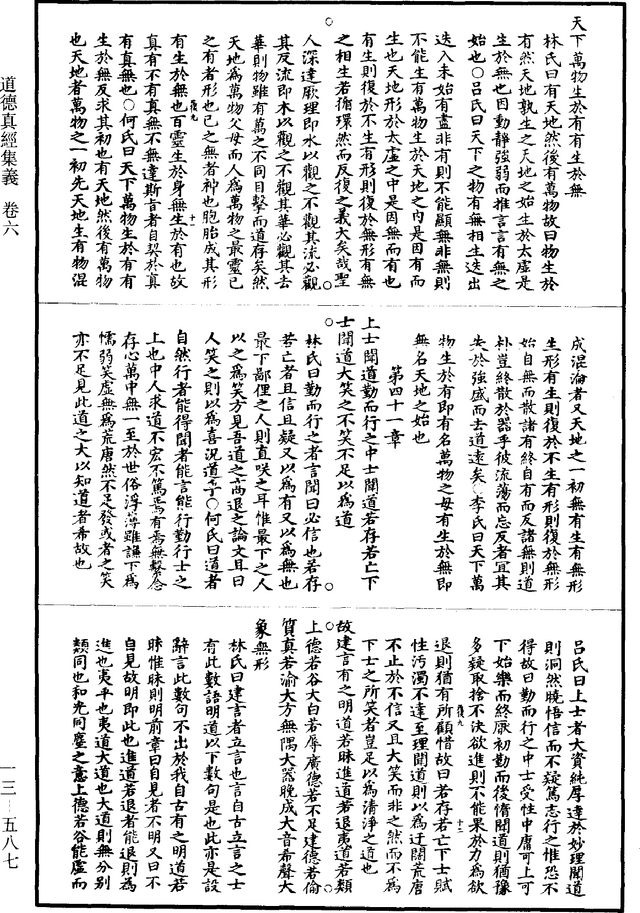 天下萬物生於有有生於無
林氏曰有天地然後有萬物故曰物生於
有然天地孰生之天地之始生於太虛是
生於無也因動靜強弱而推言言有無之
始也○呂氏曰天下之物有無相生迭出
迭入未始有盡非有則不能顯無非無則
不能生有萬物生於天地之內是因有而
生也天地形於太虛之中是因無而有也
有生則復於不生有形則復於無形有無
之相生若循環然而反復之義大矣哉聖
人深達厥理即水以觀之不觀其流必觀
其反流即本以觀之不觀其華必觀其去
華則物雖有萬之不同目擊而道存矣然
天地為萬物父母而人為萬物之最靈已
之有者形也已之無者神也胞胎成其形
有生於無也百靈生於身無生於有也故
真有不有真無不無達斯旨者自契於真
有真無也○何氏曰天下萬物生於有有
生於無反求其初也有天地然後有萬物
也天地者萬物之一初先天地生有物混
成混淪者又天地之一初無有生有無形
生形有生則復於不生有形則復於無形
始自無而散諸有終自有而反諸無則道
朴豈終散於器乎彼流蕩而忘反者宜其
失於強盛而去道遠矣○李氏曰天下萬
物生於有即有名萬物之母有生於無即
無名天地之始也
第四十一章
上士聞道勤而行之中士聞道若存若亡下
士聞道大笑之不笑不足以為道
林氏曰勤而行之者言聞曰必信也若存
若亡者且信且疑又以為有又以為無也
最下鄙俚之人則直咲之耳惟最下之人
以之為笑方見吾道之高退之論文且曰
人笑之則以為喜況道乎○何氏曰道者
自然行者能得聞者能言能行勤行士之
上也中人求道不宏不篤焉有焉無繫念
存心萬中無一至於世俗浮薄雖謙下為
懦弱笑虛無為荒唐然不足發或者之笑
亦不足見此道之大以知道者希故也
呂氏曰上士者大資純厚達於妙理聞道
則洞然曉悟信而不疑篤志行之惟恐不
得故曰勤而行之中士受性中庸可上可
下始樂而終厭初勤而後惰聞道則猶豫
多疑取捨不決欲進則不能果於力為欲
退則猶有所顧惜故曰若存若亡下士賦
性污濁不達至理聞道則以為迂闊荒唐
不止於不信又且大笑而非之然而不為
下士之所笑者豈足以為清淨之道也
故建言有之明道若昧進道若退夷道若纇
上德若谷大白若辱廣德若不足建德若偷
質真若渝大方無隅大器晚成大音希聲大
象無形
林氏曰建言者立言也言自古立言之士
有此數語明道以下數句是也此亦是設
辭言此數句不出於我自古有之明道若
昧惟昧則明前章曰自見者不明又曰不
自見故明即此也進道若退者能退則為
進也夷平也夷道大道也大道則無分別
纇同也和光同塵之意上德若谷能虛而
道德真經集義 卷六
一三—五八七